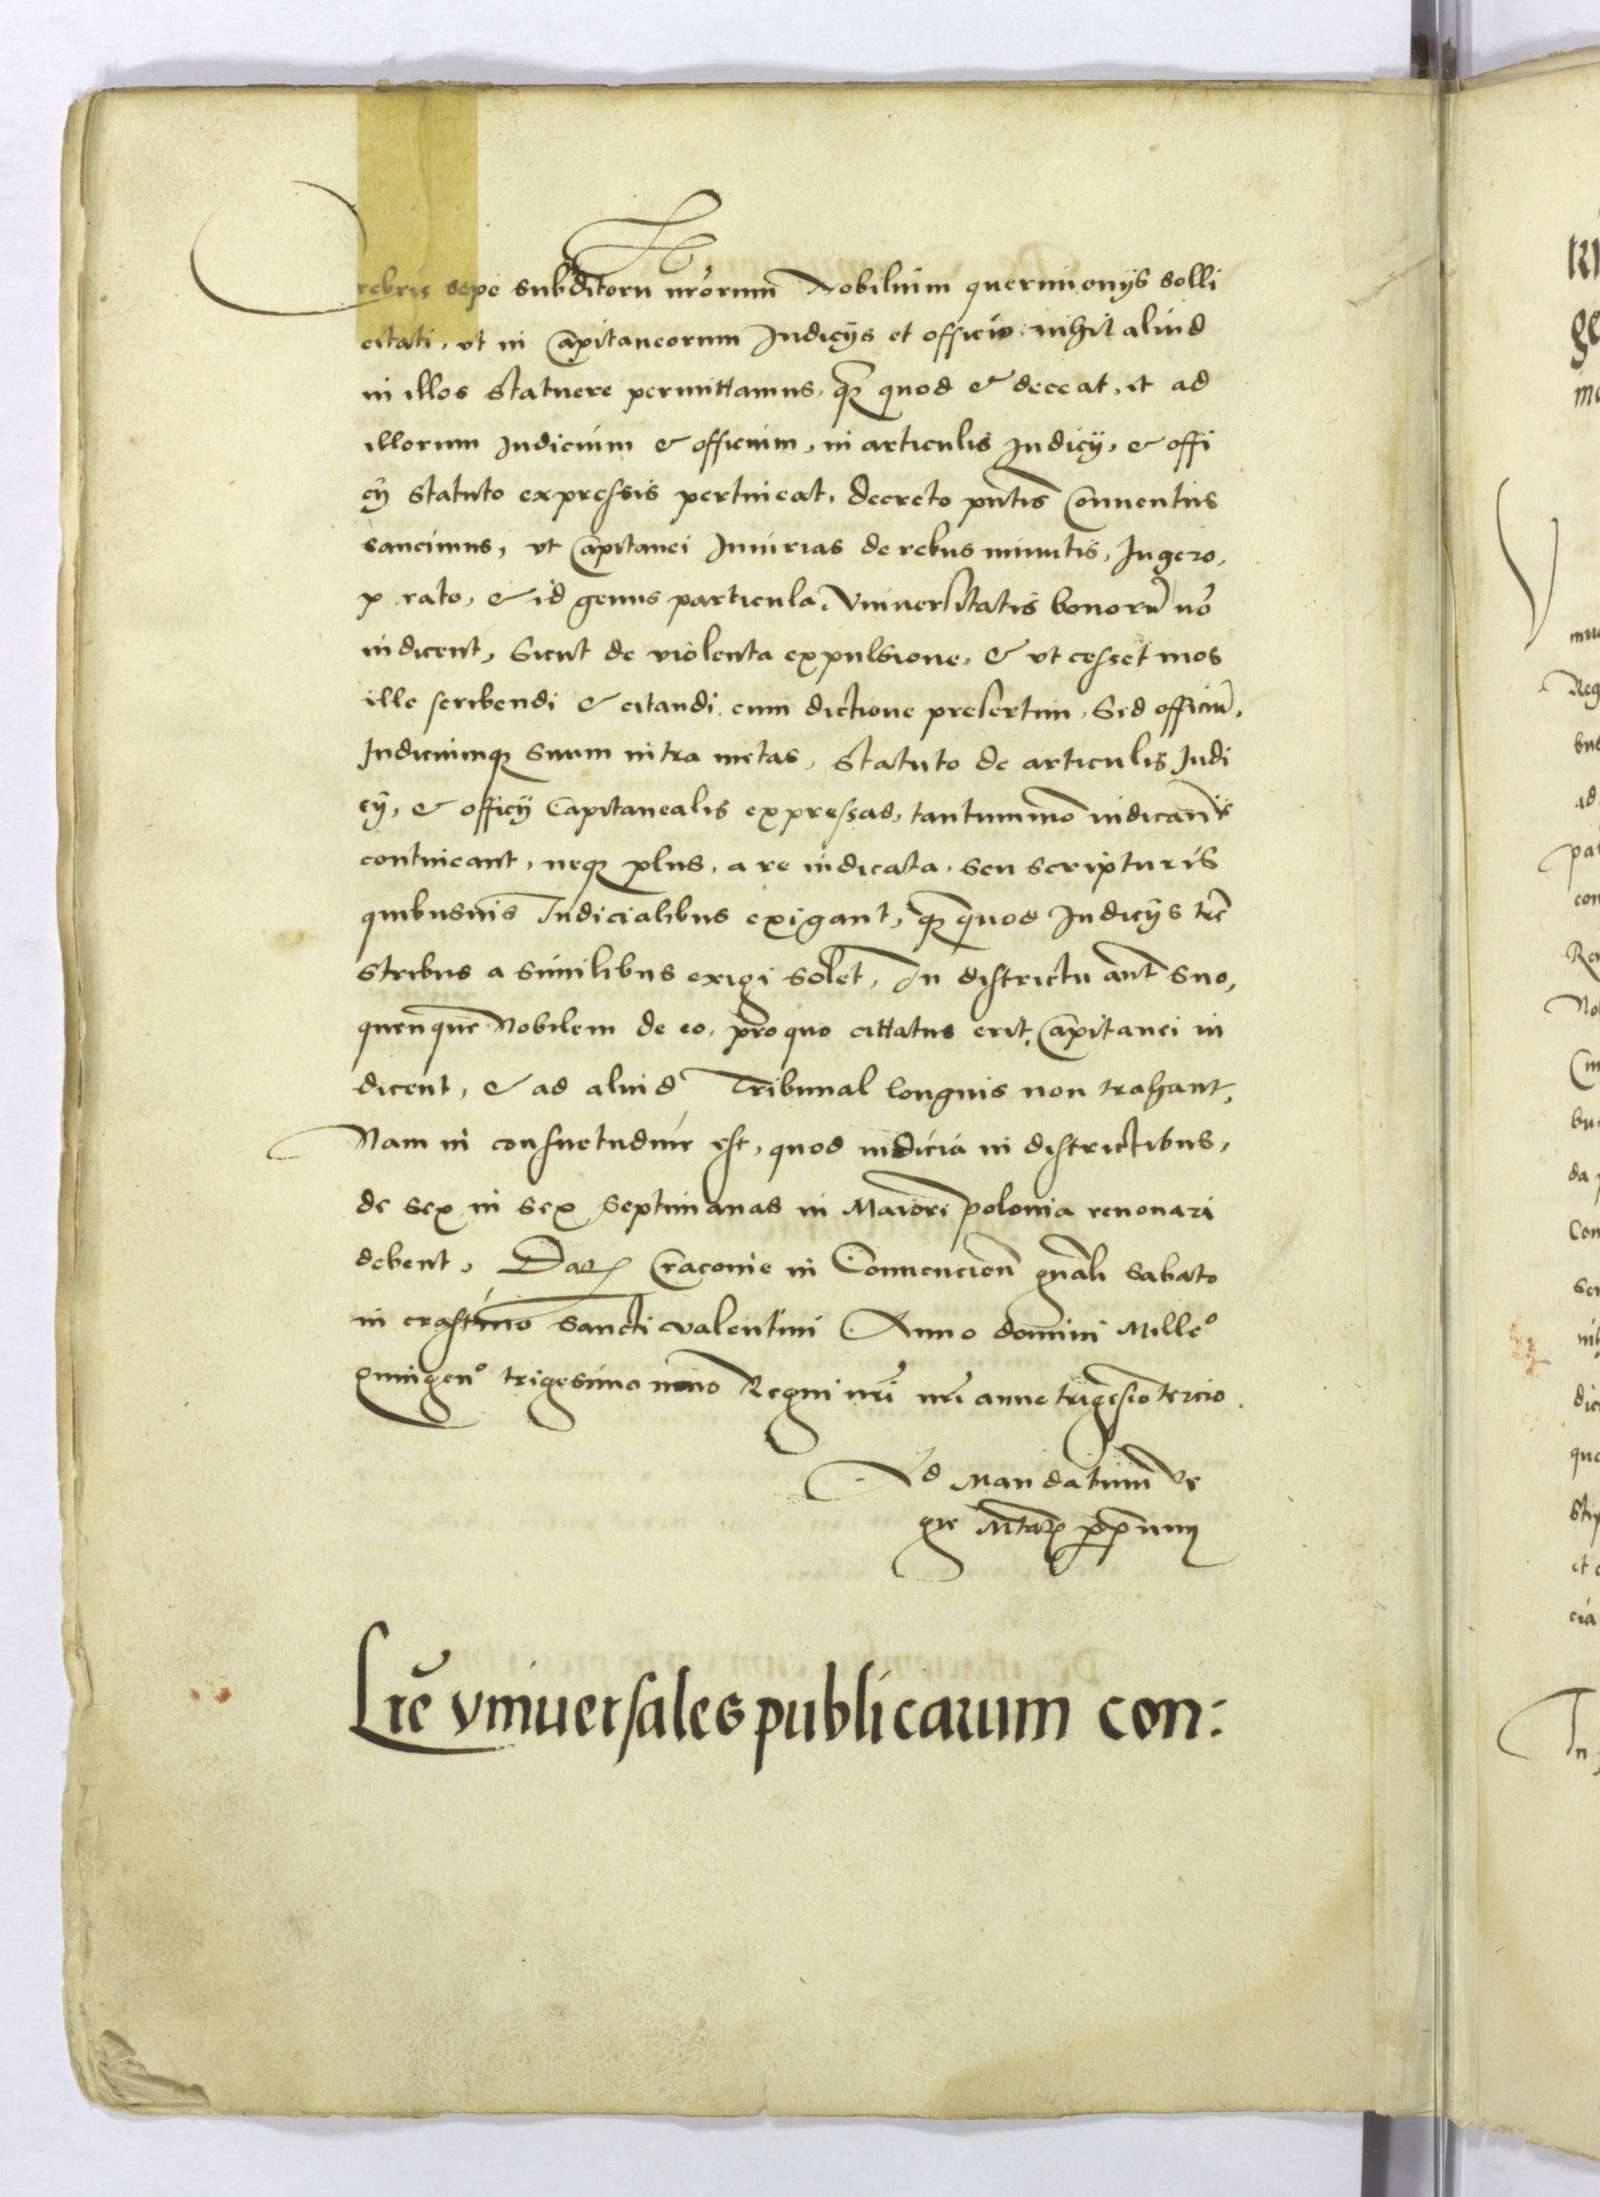 Crebris sepe subditoru nrorum Nobilium querimonijs solli
citati, vt in Capitaneorum Judicijs et officio nihil aliud
in illos statuere permittamus, q̃ quod & deceat, et ad
illorum Judicium & officium, in articulis Judicij, & offi
cij statuto expressis pertineat, decreto pñtis Conuentus
sancimus, vt Capitanei Iniurias de rebus minutis, Jugero,
prato, & id genus particula Vniuersitatis bonorũ nõ
iudicent, Sicut de violenta expulsione, & vt cesset mos
ille scribendi & citandi cum dictione presertim, Sed officiũ,
Judiciumq̃ suum intra metas, statuto de articulis Judi
cij, & officij Capitanealis expressas, tantummõ
contineant, neq̃ plus, a re iudicata, seu scripturis
quibusuis Judicialibus exigant, q̃ quod Judicijs terre
stribus a similibus exigi solet, In districtu aut̃ suo,
quenque Nobilem de eo, pro quo cittatus erit, Capitanei iu
dicent, & ad aliud Tribunal longius non trahant,
Nam in consuetudine est, quod iudicia in districtibus,
de sex in sex septimanas in Maiori polonia renouari
debent, Dat̃ Cracouie in Conuencioñ gñali Sabato
in crastino sancti valentini Anno domini Mille°
quingen° trigesimo nono Regni nri nri anno trigesio tercio
Ad Mandatum Re
gie Mtat̃
Lrẽ vniuersales publicarum con: